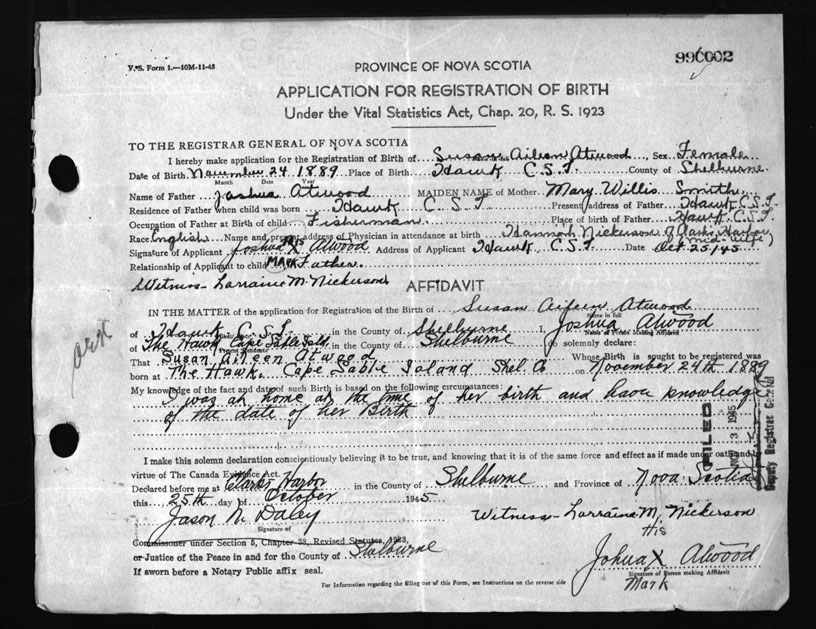 V.S. Form 1.—10M-11-45
PROVINCE OF NOVA SCOTIA
APPLICATION FOR REGISTRATION OF BIRTH
Under the Vital Statistics Act, Chap. 20, R. S. 1923
TO THE REGISTRAR GENERAL OF NOVA SCOTIA
I hereby make application for the Registration of Birth of Susan Aileen Atwood, Sex Female
Date of Birth November 24 1889 Place of Birth Hawk C.S.I. County of Shelburne
Month Day Year
Name of Father Joshua Atwood MAIDEN NAME of Mother Mary Willis Smith
Residence of Father when child was born Hawk C.S.I Present address of Father Hawk C.S.I
Occupation of Father at Birth of child Fisherman Place of birth of Father Hawk C.S.I.
Race English Name and present address of Physician in attendance at birth Hannah Nickerson Clarks Harbor
(mid-wife)
Signature of Applicant Joshua His X Atwood Address of Applicant Hawk, C.S.I Date Oct 25/45
Relationship of Applicant to child MARK Father
Witness- Lorraine M. Nickerson
AFFIDAVIT
IN THE MATTER of the application for Registration of the Birth of Susan Aileen Atwood
Name in full
of Hawk C.S.I. in the County of Shelburne I, Joshua Atwood
of The Hawk Cape Sable Isld in the County of Shelburne do solemnly declare:
That Susan Aileen Atwood Whose Birth is sought to be registered was
born at The Hawk. Cape Sable Island Shel. Co on November 24th 1889
My knowledge of the fact and date of such Birth is based on the following circumstances:
I was at home at the time of her birth and have knowledge
of the date of her Birth
I make this solemn declaration conscientiously believing it to be true, and knowing that it is of the same force and effect as if made under oath and by
virtue of The Canada Evidence Act.
Declared before me at Clarks Harbor in the County of Shelburne and Province of Nova Scotia
this 25th day of October 1945
Jason N. Daley
Witness- Lorraine M. Nickerson
Signature of
Commissioner under Section 5, Chapter 38, Revised Statutes, 1923,
or Justice of the Peace in and for the County of Shelburne
If sworn before a Notary Public affix seal.
His
Johua X Atwood
Signature of Person making Affidavit
Mark
For Information regarding the filling out of this Form, see Instructions on the reverse side
FILED
Deputy Registrar General